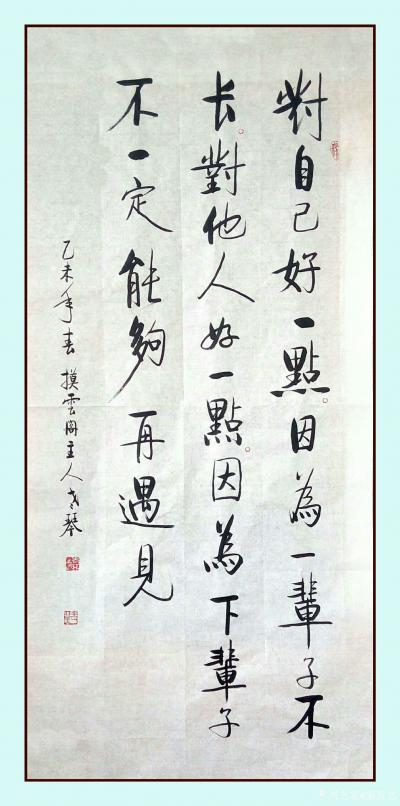 對自己好一點因為一輩子不
长對他人好一點因為下輩子
不一定能夠再遇見
乙未年春摸雲阁主人琴